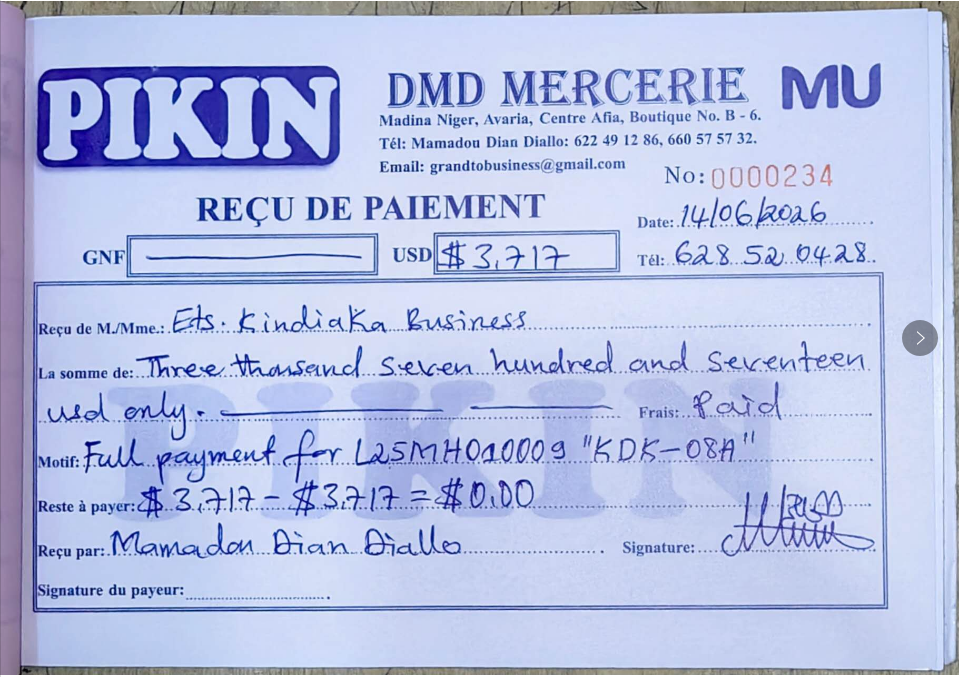 PIKIN
DMD MERCERIE
MU
Madina Niger, Avaria, Centre Afia, Boutique No. B - 6.
Tél: Mamadou Dian Diallo: 622 49 12 86, 660 57 57 32.
Email: grandtobusiness@gmail.com
No: 0000234
REÇU DE PAIEMENT
Date: 14/06/2026
GNF
USD $3,717
Tél: 628 52 04 28
Reçu de M./Mme.: Ets. Kindiaka Business
La somme de: Three thousand seven hundred and seventeen
usd only.
Frais: Paid
PIKIN
Motif: Full payment for L25MH010009 "KDK-08A"
Reste à payer: $3,717 - $3,717 = $0.00
Reçu par: Mamadou Dian Diallo
Signature:
Signature du payeur: